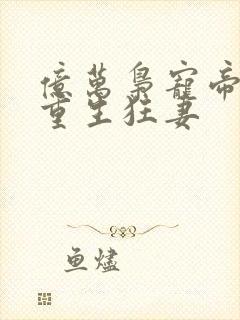 億萬梟寵帝
重生狂妻
鱼燼